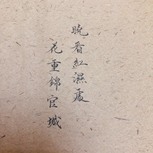 晓看紅濕處
花重錦官城